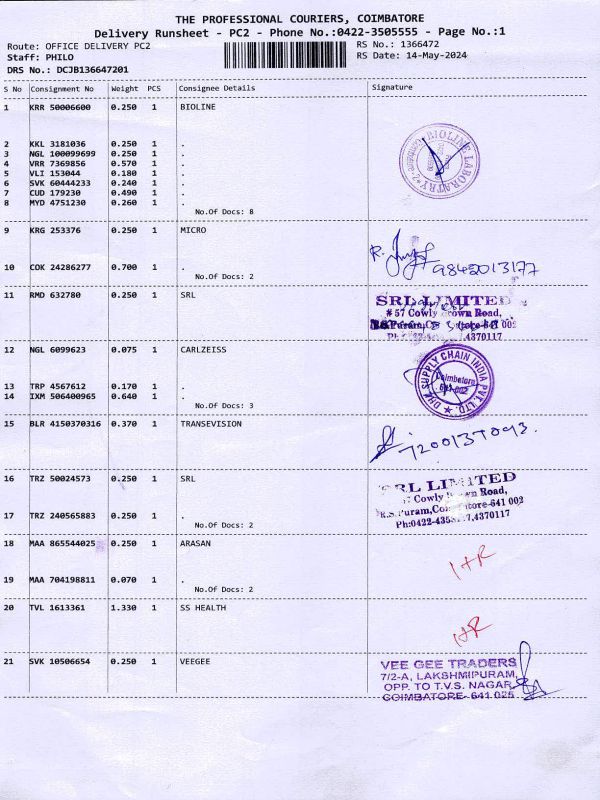 THE PROFESSIONAL COURIERS, COIMBATORE
Delivery Runsheet - PC2 - Phone No.:0422-3505555 - Page No.:1
Route: OFFICE DELIVERY PC2 RS No.: 1366472
Staff: PHILO RS Date: 14-May-2024
DRS No.: DCJB136647201
S No Consignment No Weight PCS Consignee Details Signature
1 KRR 50006600 0.250 1 BIOLINE
BIOLINE LABORATORY
2 KKL 3181036 0.250 1 .
3 NGL 100099699 0.250 1 .
4 VRR 7369856 0.570 1 .
5 VLI 153044 0.180 1 .
6 SVK 60444233 0.240 1 .
7 CUD 179230 0.490 1 .
8 MYD 4751230 0.260 1 .
No.Of Docs: 8
9 KRG 253376 0.250 1 MICRO
R.
9842013177
10 COK 24286277 0.700 1 .
No.Of Docs: 2
11 RMD 632780 0.250 1 SRL
SRL LIMITED
# 57 Cowly Brown Road,
R.S.Puram, Coimbatore-641 002
4370117
12 NGL 6099623 0.075 1 CARLZEISS
DHL SUPPLY CHAIN INDIA PVT. LTD.
Coimbatore
641 002
13 TRP 4567612 0.170 1 .
14 IXM 506400965 0.640 1 .
No.Of Docs: 3
15 BLR 4150370316 0.370 1 TRANSEVISION
7200137093.
16 TRZ 50024573 0.250 1 SRL
SRL LIMITED
57 Cowly Brown Road,
R.S.Puram, Coimbatore-641 002
Ph:0422-435 7,4370117
17 TRZ 240565883 0.250 1 .
No.Of Docs: 2
18 MAA 865544025 0.250 1 ARASAN
HR
19 MAA 704198811 0.070 1 .
No.Of Docs: 2
20 TVL 1613361 1.330 1 SS HEALTH
HR
21 SVK 10506654 0.250 1 VEEGEE
VEE GEE TRADERS
7/2-A, LAKSHMIPURAM,
OPP. TO T.V.S. NAGAR,
COIMBATORE- 641 025